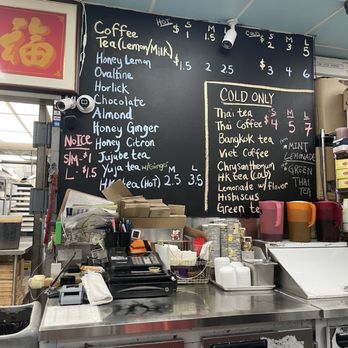 福
HOT S M L
COLD S M L
Coffee $1 1.5 2 $2 3 5
Tea (Lemon/Milk)
Honey Lemon $1.5 2 2.5 $3 4 6
Ovaltine
Horlick
Chocolate
Almond
Honey Ginger
Honey Citron
Jujube tea
Yuja tea w/Ginger M L
HK tea (HOT) 2.5 3.5
NO ICE
S/M-$1
L-$1.5
COLD ONLY
S M L
Thai tea
Thai Coffee $4 5 7
Bangkok tea
Viet Coffee
Chrysanthemum
HK tea (COLD)
Lemonade w/ Flavor
Hibiscus
Green tea
*MINT
LEMONADE
*GREEN
THAI
TEA